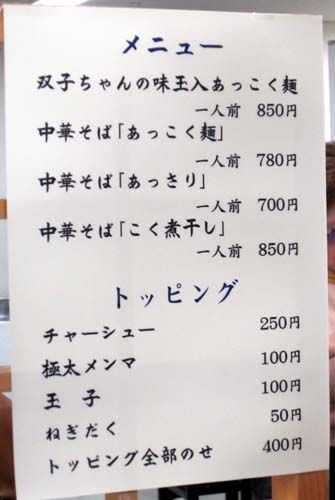 メニュー
双子ちゃんの味玉入あっこく麺
一人前 850円
中華そば「あっこく麺」
一人前 780円
中華そば「あっさり」
一人前 700円
中華そば「こく煮干し」
一人前 850円
トッピング
チャーシュー 250円
極太メンマ 100円
玉 子 100円
ねぎだく 50円
トッピング全部のせ 400円